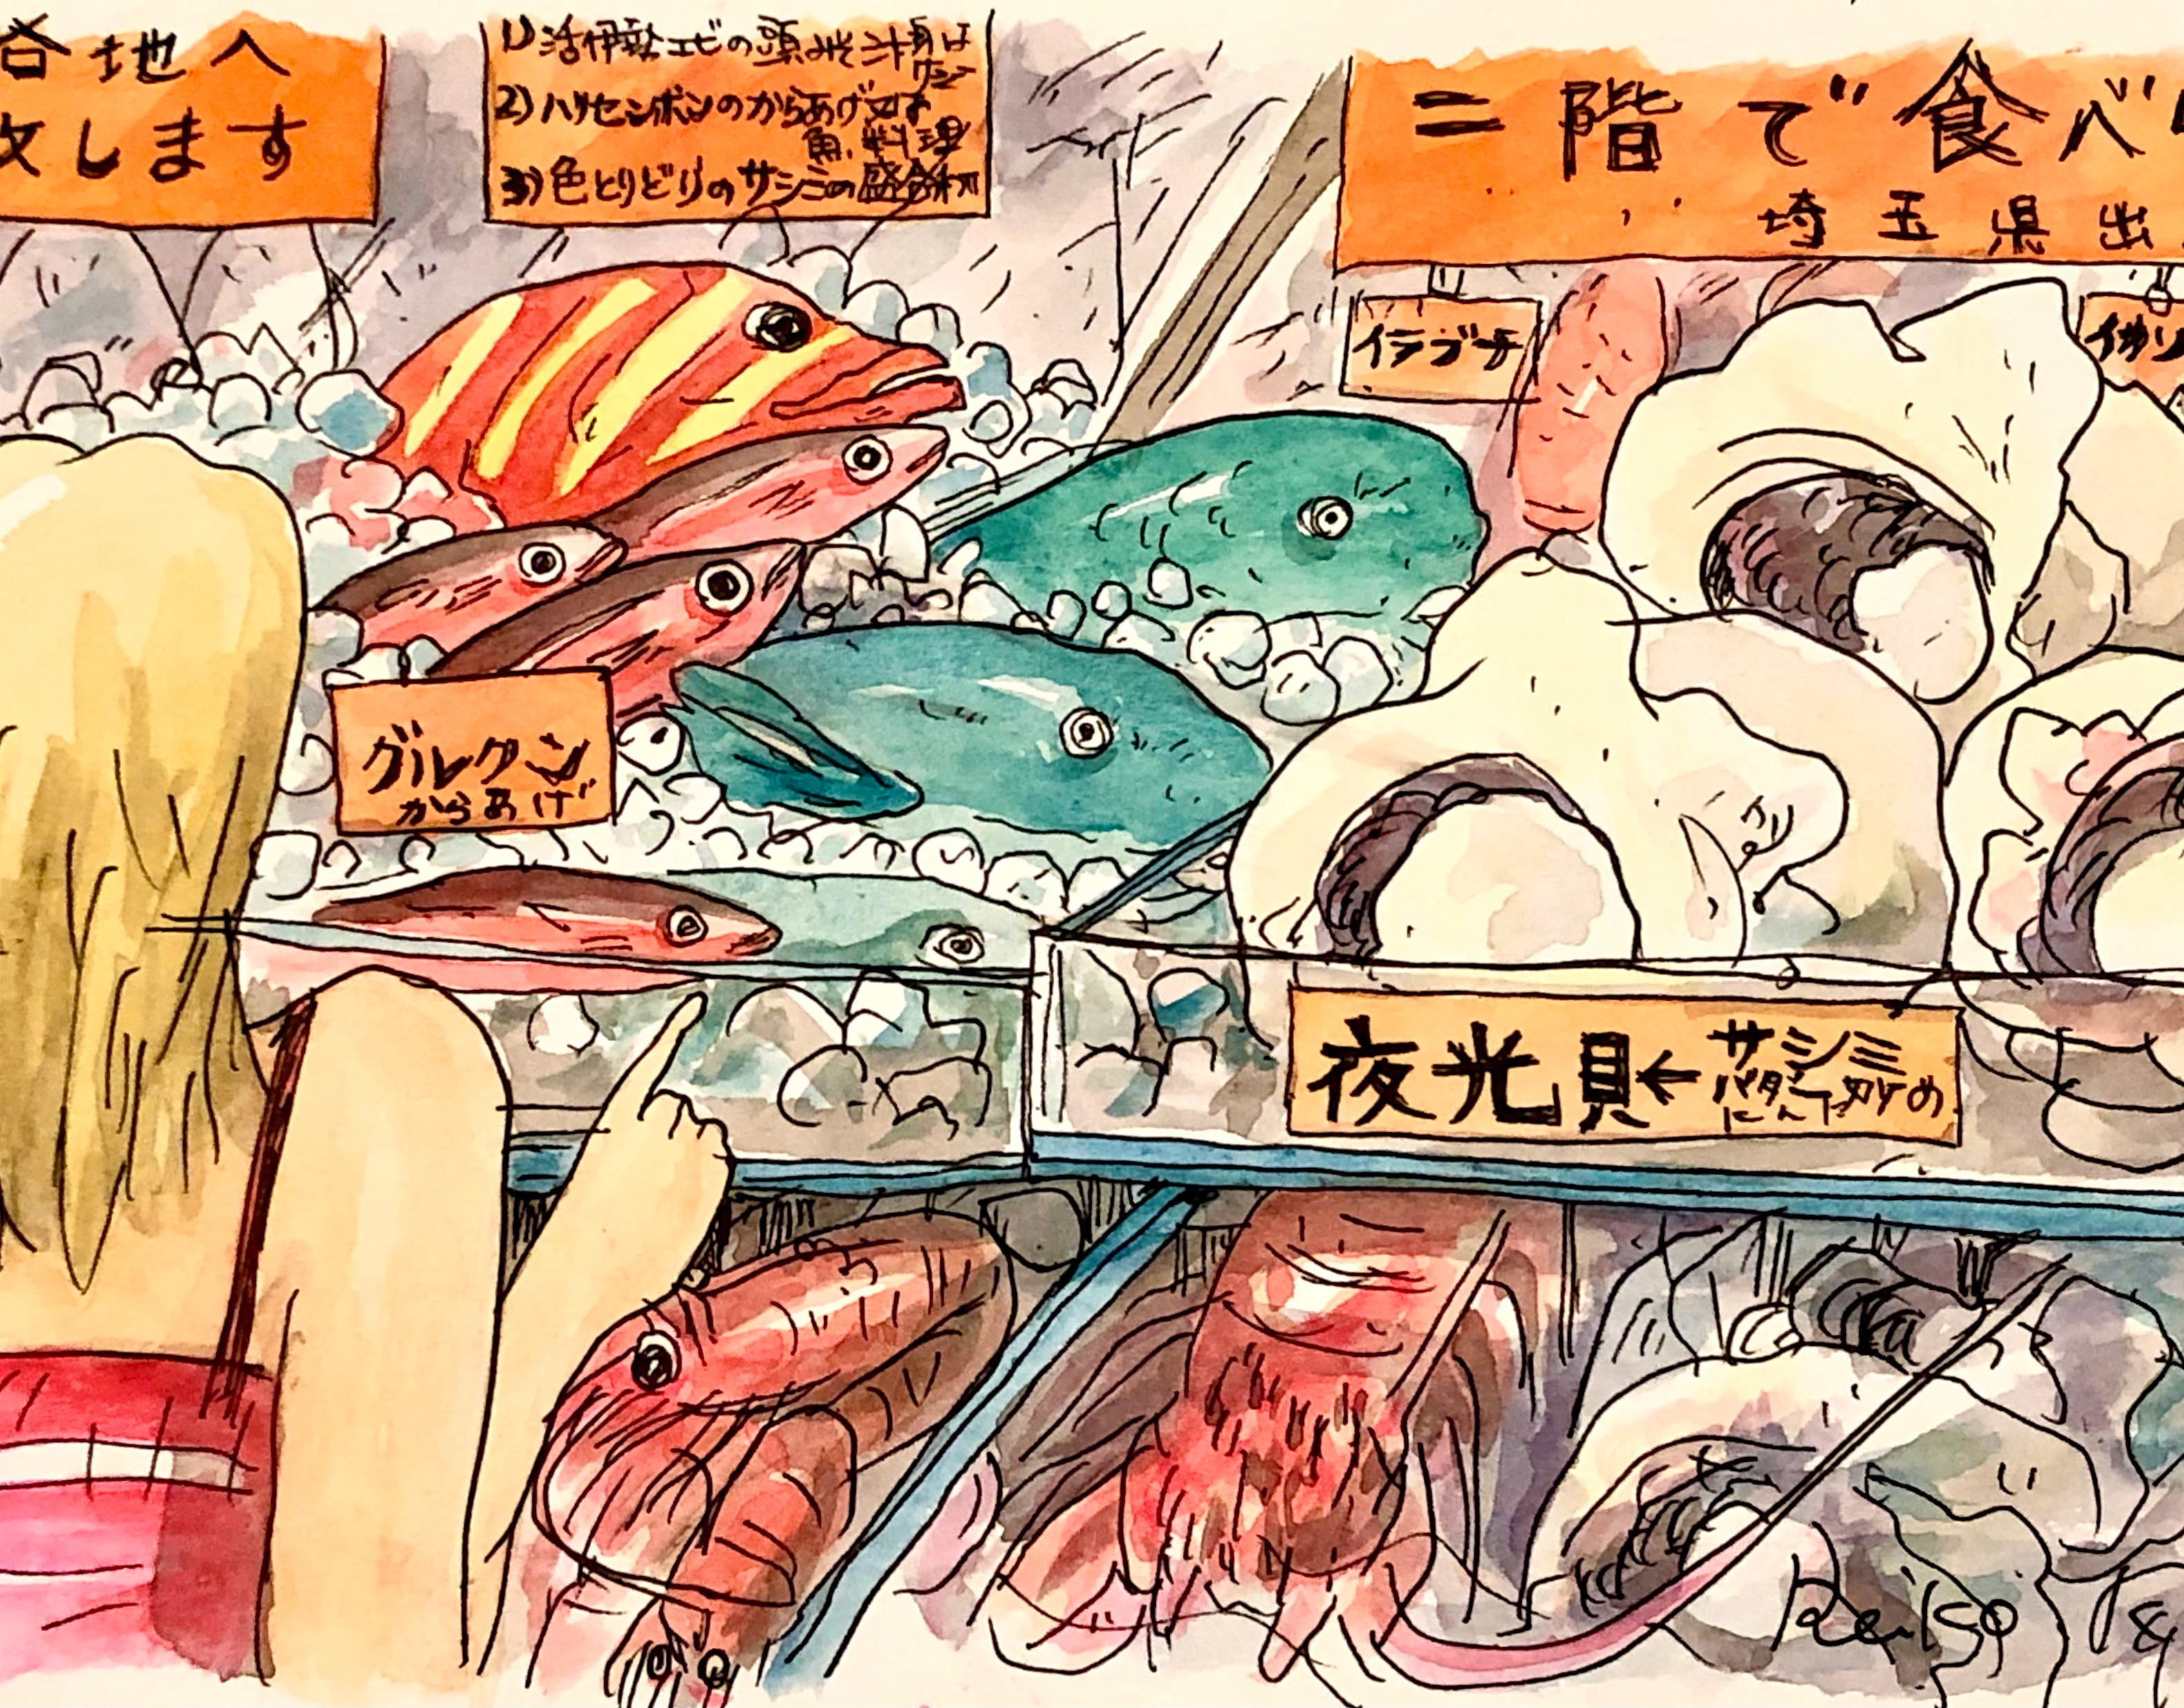 各地へ
致します
1) 活伊勢エビの頭みそ汁身は
2) ハリセンボンのからあげ又は
魚料理
3) 色とりどりのサシミの盛合わせ
二階で食べ
埼玉県出
イラブチ
グルクン
からあげ
夜光貝←サシミ
バター
にんにく炒め
Keiko